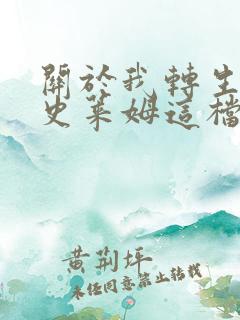 關於我轉生
史萊姆這檔
黃荊坪
未经同意禁止转载